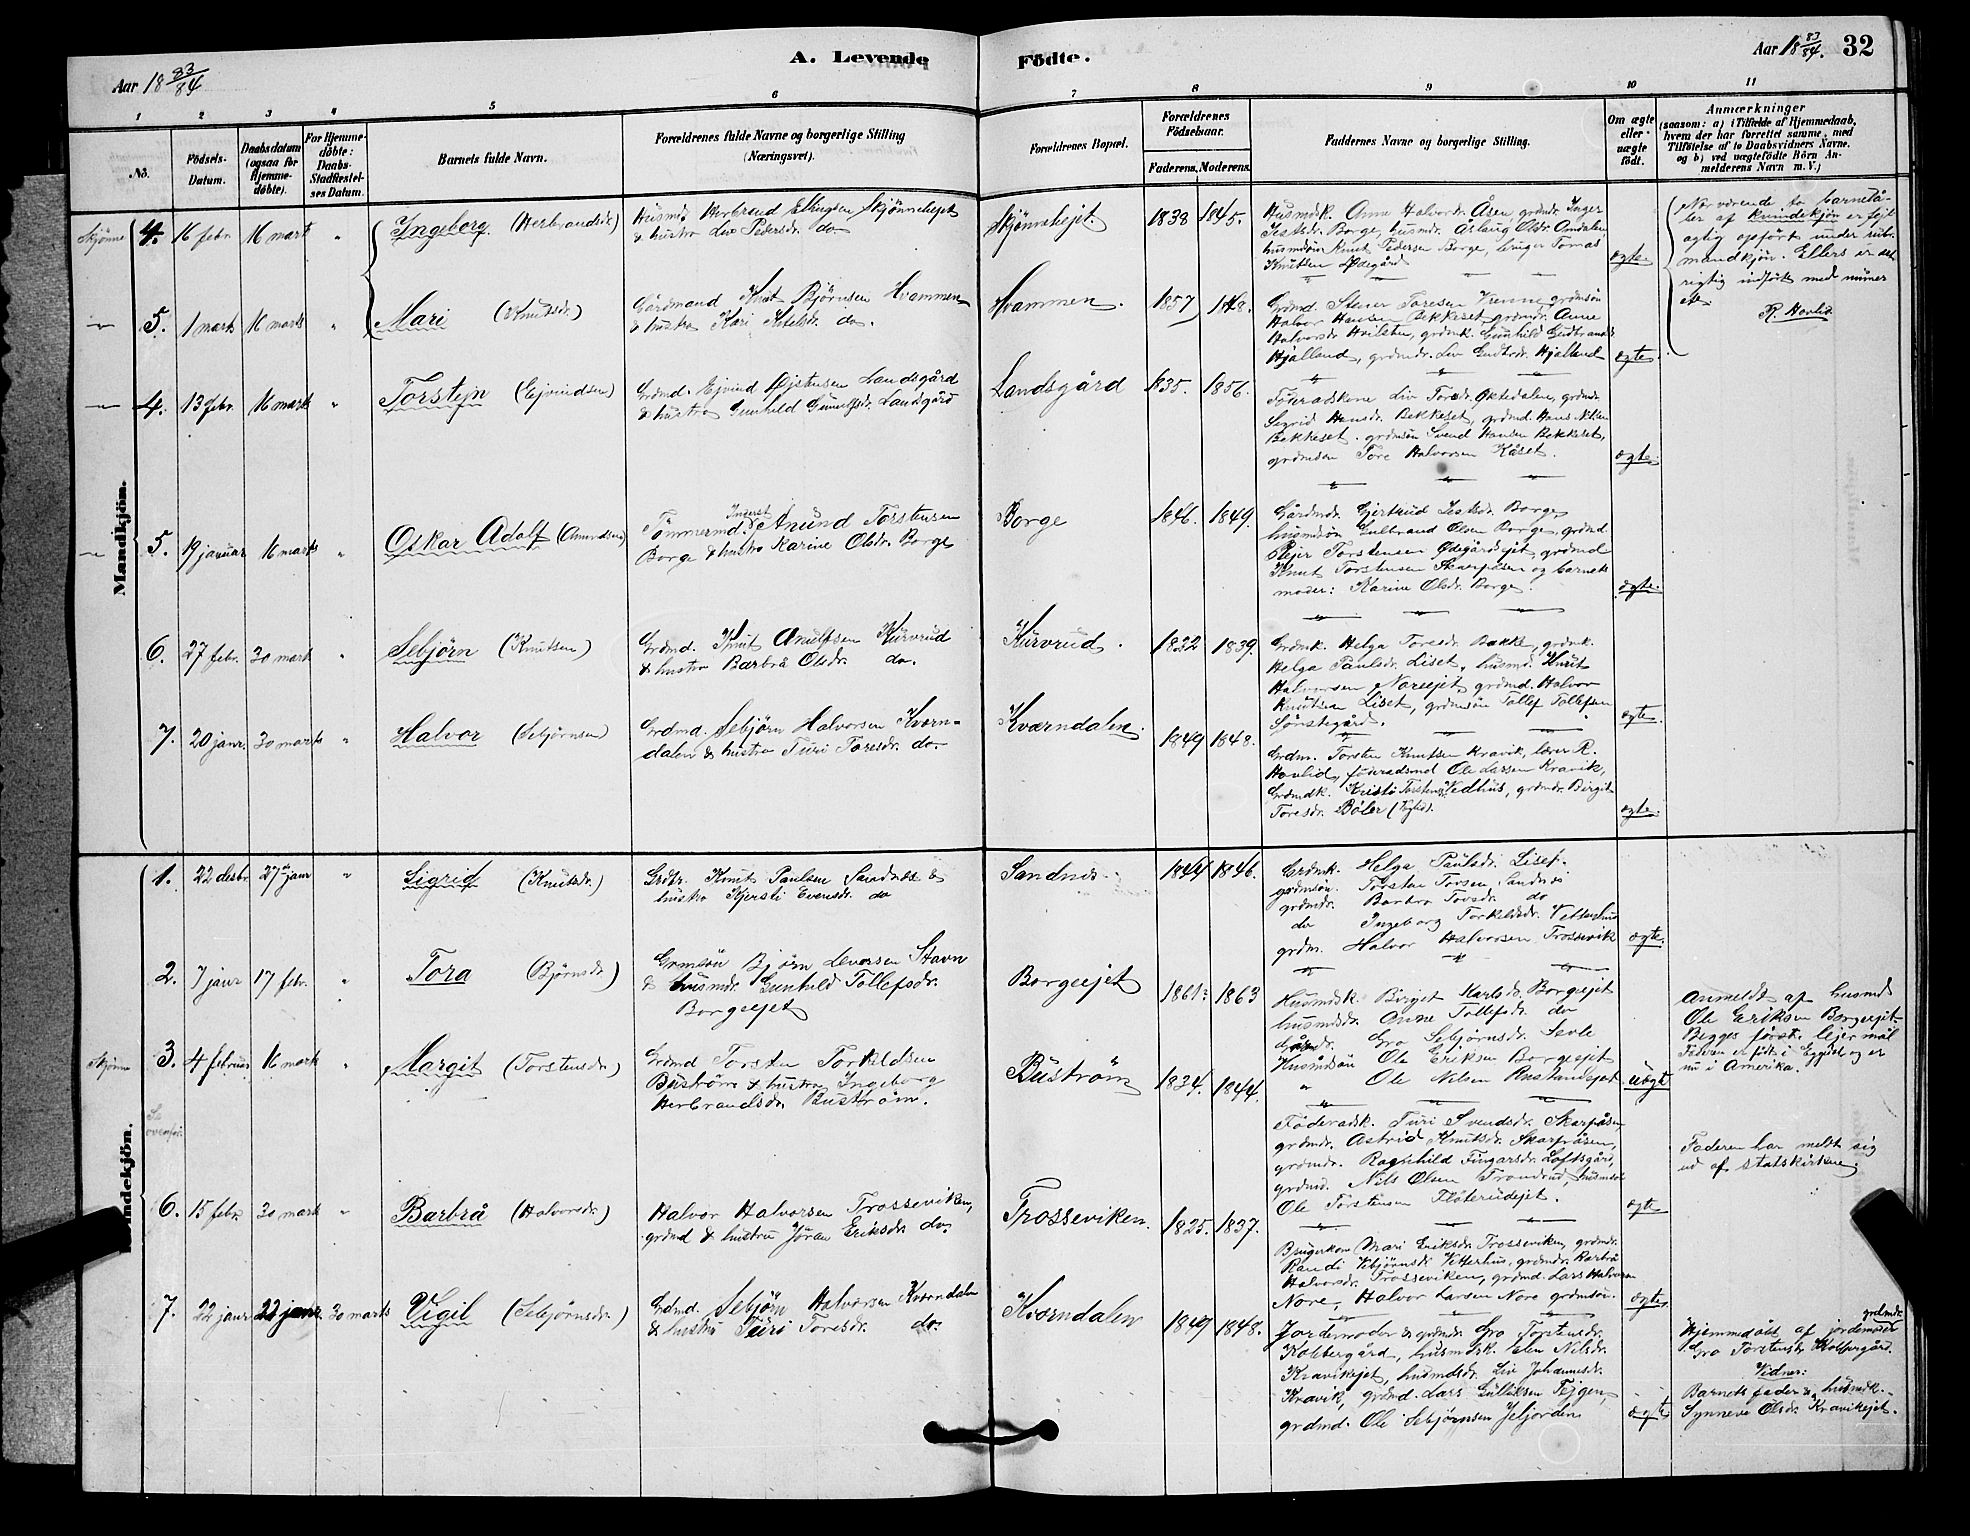 Aar 18 83/84
A. Levende
Födte.
Aar 18 83/84. 32
1 2 3 4 5 6 7 8 9 10 11
No.
Födsels-Datum.
Daabsdatum (ogsaa for Hjemme-döbte).
For Hjemme-döbte: Daabs-Stadfæstel-ses Datum.
Barnets fulde Navn.
Forældrenes fulde Navne og borgerlige Stilling (Næringsvei).
Forældrenes Bopæl.
Forældrenes Födselsaar.
Faderens. Moderens.
Faddernes Navne og borgerlige Stilling.
Om ægte eller uægte födt.
Anmærkninger
(saasom: a) i Tilfælde af Hjemmedaab,
hvem der har forrettet samme, med
Tilföielse af to Daabsvidners Navne.
og b) ved uægtefödte Börn An-
melderens Navn m. V.)
Mandkjön.
Skjönne 4. 16 febr. 16 mart " Ingeborg (Herbrandsdr.)
Husmd. Herbrand Ellingsen Skjönneejet
& hustro Liv Pedersdr. do
Skjönneejet. 1838 1845.
Husmdk. Anne Halvorsdr. Åsen, grdmdr. Inger
Borge, husmdr. Åslaug Olsdr. Omdalen
husmdsön Knut Pedersen Borge, bruger Tomas
Knutsen Ødegård
ægte.
De to barnedå-
ber af kvindekjön er fejl
agtig opfört under rubr.
mandkjön. Ellers er det
rigtig indfört med numer
R. Hovlid
5. 1 mart 16 marts " Mari (Knutsdr.)
Gårdmand Knut Björnsen Hvammen
& hustro Kari do.
Hvammen. 1857 1848.
Grdmd. Steiner Toresen Vrenne, grdmsön
Halvor Hansen Bekkeset, grdmdr. Anne
Halvorsdr. grdmk. Gunhild Gudbrandsdr.
Hjälland, grdmdr. Liv Gudbrdr. Hjalland
ægte.
4. 13 febr. 16 mart " Torstein (Ejvindsen)
Grdmd. Ejvind Øjstensen Landsgård
& hustro Gunhild Gunulfsdr. Landsgård
Landsgård 1835. 1856.
Föderadskone Liv Toresdr. Øktedalen, grdmdr.
Sigrid Hansdr. Bekkeset, grdmd. Hans Nilsen
Bekkeset, grdmsön Svend Hansen Bekkeset,
grdmsön Tore Halvorsen Kåset.
ægte.
5. 19 januar 16 marts " Oskar Adolf (Amundsen)
Inderst
Tömmermd. Anund Torstensen
Borge & hustro Karine Olsdr. Borge
Borge 1846. 1849.
Gårdmdr. Gjertrud Borge,
husmdsön Gulbrand Olsen Borge, grdmd.
Rejer Torstensen Ødegårdejet, grdmd
Knut Torstensen Skarpåsen og barnets
moder: Karine Olsdr. Borge.
ægte.
6. 27 febr. 30 mart " Sebjörn (Knutsen)
Grdmd. Knut Anulfsen Kurvrud
& hustro Barbrå Olsdr. do.
Kurvrud. 1832 1839.
Grdmk. Helga Toresdr. Bakke, grdmk.
Helga Paulsdr. Liset, husmd. Knut
Halvorsen Noreejet, grdmd. Halvor
Knutsen Liset, grdmsön Tollef Tollefsen
Sörstegård.
ægte.
7. 20 janr. 30 marts " Halvor (Sebjörnsen)
Grdmd. Sebjörn Halvorsen Kværn-
dalen & hustro Turi Toresdr. do.
Kværndalen. 1849 1848.
Grdm. Torsten Knutsen Kravik, lærer R.
Hovlid, föderadsmd Ole Larsen Kravik,
Grdmdk. Kristi Torstensdr. Vedhus, grdmdr. Birgit
Toresdr. Böler
ægte.
Kvindekjön.
1. 22 desbr 27 janr " Sigrid (Knutsdr.)
Grdbr. Knut Paulsen Sandnes &
hustro Kjersti Evensdr. do
Sandnes. 1844 1846.
Grdmk. Helga Paulsdr. Liset.
grdmsön. Torsten Torsen Sandnes
grdmdr. Barbra Torsdr. do
do Ingeborg Torkelsdr. Vetterhus
grdm. Halvor Halvorsen Trossevik
ægte.
2. 7 janr 17 febr. " Tora (Björnsdr.)
Grdmsön Björn Stavn
& husmdr. Gunhild Tollefsdr.
Borgeejet
Borgeejet 1861? 1863
Husmdsk. Birget Karlsdr. Borgeejet
husmdsdr. Anne Tollefsdr. do
Gro Sebjörnsdr. Sevle
Husmdsön Ole Eriksen Borgeejet
" Ole Nilsen Rustandejet
uægte
Anmeldt af husmd
Ole Eriksen Borgeejet.
Begges förste lejermål
Faderen er födt i Eggedal og er
nu i Amerika.
Skjönne 3. 4 februar 16 mark " Margit (Torstensdr.)
Grdmd Torsten Torkeldsen
Buström & hustru Ingeborg
Herbrandsdr. Buström.
Buström 1834. 1844.
Föderadsk. Turi Svendsdr. Skarpåsen
grdmdr. Astrid Knutsdr. Skarpåsen,
grdmdr. Ragnhild Fingarsdr. Loftsgård,
grdmd. Nils Olsen Trondrud, husmd
Ole Torstensen Flåterudejet.
ægte
Faderen har meldt sig
ud af statskirken.
6. 15 febr. 30 mark " Barbrå (Halvorsdr.)
Halvor Halvorsen Trosseviken,
grdmd & hustru Jöran Eriksdr. do.
Trosseviken. 1825. 1837.
Brugerkone Mari Eriksdr. Trosseviken, grdmdr.
Randi Vebjörnsdr. Vetterhus, grdmdr. Barbrå
Halvorsdr. Trosseviken, grdmd. Lars Halvorsen
Nore, Halvor Larsen Nore grdmsön.
ægte
7. 22 janr 22 janr 30 marts Vigil (Sebjörnsdr.)
Grdmd. Sebjörn Halvorsen Kværndalen
& hustru Turi Toresdr. do.
Kværndalen 1849 1848.
Jordemoder & grdmdr. Gro Torstensdr.
Kobbergård, husmdsk. Nilsdr.
Kravikejet, husmdsdr. Liv Johannesdr.
Kravik, grdmd. Lars Gulliksen Tejgen,
grdmd. Ole Sebjörnsen Jeljorden
ægte
Hjemmedöbt af grdmdr jordemoder
Gro Torstensdr. Kobbergård.
Vidner:
Barnets fader & husmdk.
Synneve Olsdr. Kravikejet.